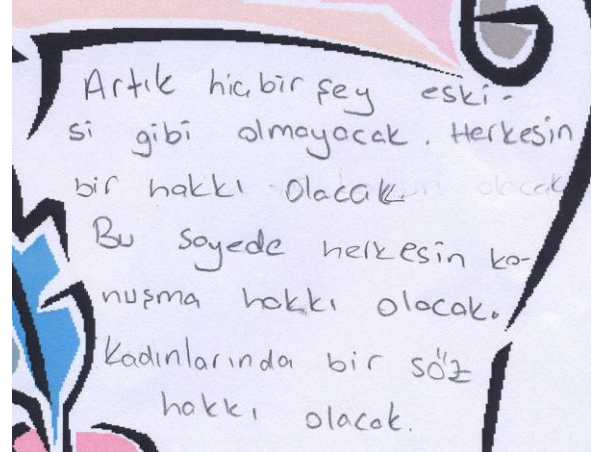 Artık hiçbir şey eski-
si gibi olmayacak. Herkesin
bir hakkı olacak.
Bu sayede herkesin ko-
nuşma hakkı olacak.
Kadınlarında bir söz
hakkı olacak.